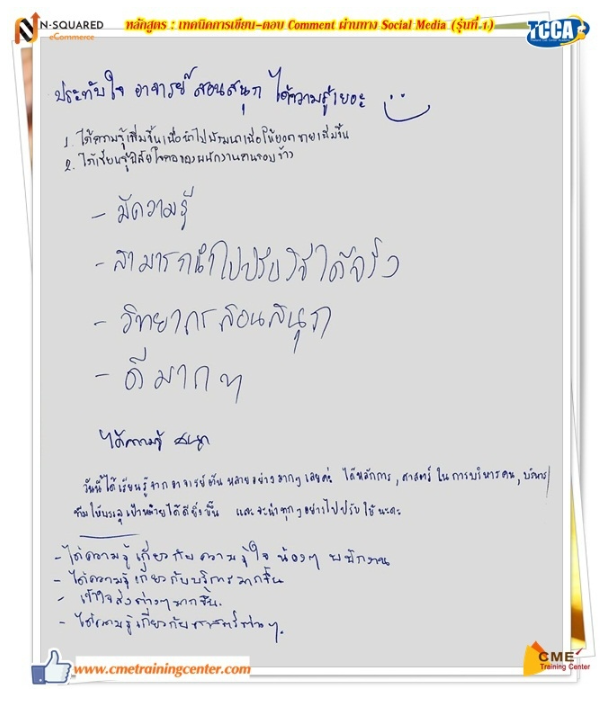 N-SQUARED
eCommerce
หลักสูตร : เทคนิคการเขียน-ตอบ Comment ผ่านทาง Social Media (รุ่นที่-1)
TCCA
ประทับใจ อาจารย์ สอนสนุก ได้ความรู้เยอะ
1. ได้ความรู้เพิ่มขึ้นเพื่อนำไปพัฒนาเพื่อให้ยอดขายเพิ่มขึ้น
2. ได้เรียนรู้นิสัยใจคอของพนักงานคนรอบข้าง
- มีความรู้
- สามารถนำไปปรับใช้ได้จริง
- วิทยากรสอนสนุก
- ดีมากๆ
ได้ความรู้ สนุก
วันนี้ได้เรียนรู้จากอาจารย์ต้น หลายอย่างมากๆ เลยค่ะ ได้หลักการ, ศาสตร์ ในการบริหารคน, บริหาร
ทีมให้บรรลุเป้าหมายได้ดียิ่งขึ้น และจะนำทุกๆอย่างไปปรับใช้นะคะ
- ได้ความรู้เกี่ยวกับความรู้ใจ น้องๆ พนักงาน
- ได้ความรู้เกี่ยวกับบริการมากขึ้น
- เข้าใจสิ่งต่างๆมากขึ้น.
- ได้ความรู้เกี่ยวกับศาสตร์
www.cmetrainingcenter.com
CME
Training Center